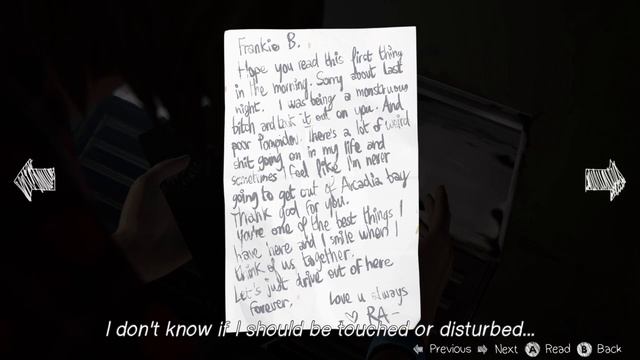 Frankie B.
Hope you read this first thing
in the morning. Sorry about last
night. I was being a monstruous
bitch and took it out on you. And
poor Pompidou. There's a lot of weird
shit going on in my life and
sometimes I feel like I'm never
going to get out of Acadia bay
Thank god for you.
You're one of the best things I
have here and I smile when I
think of us together.
Let's just drive out of here
forever.
Love u always
♡ RA-
I don't know if I should be touched or disturbed...
Previous Next A Read B Back